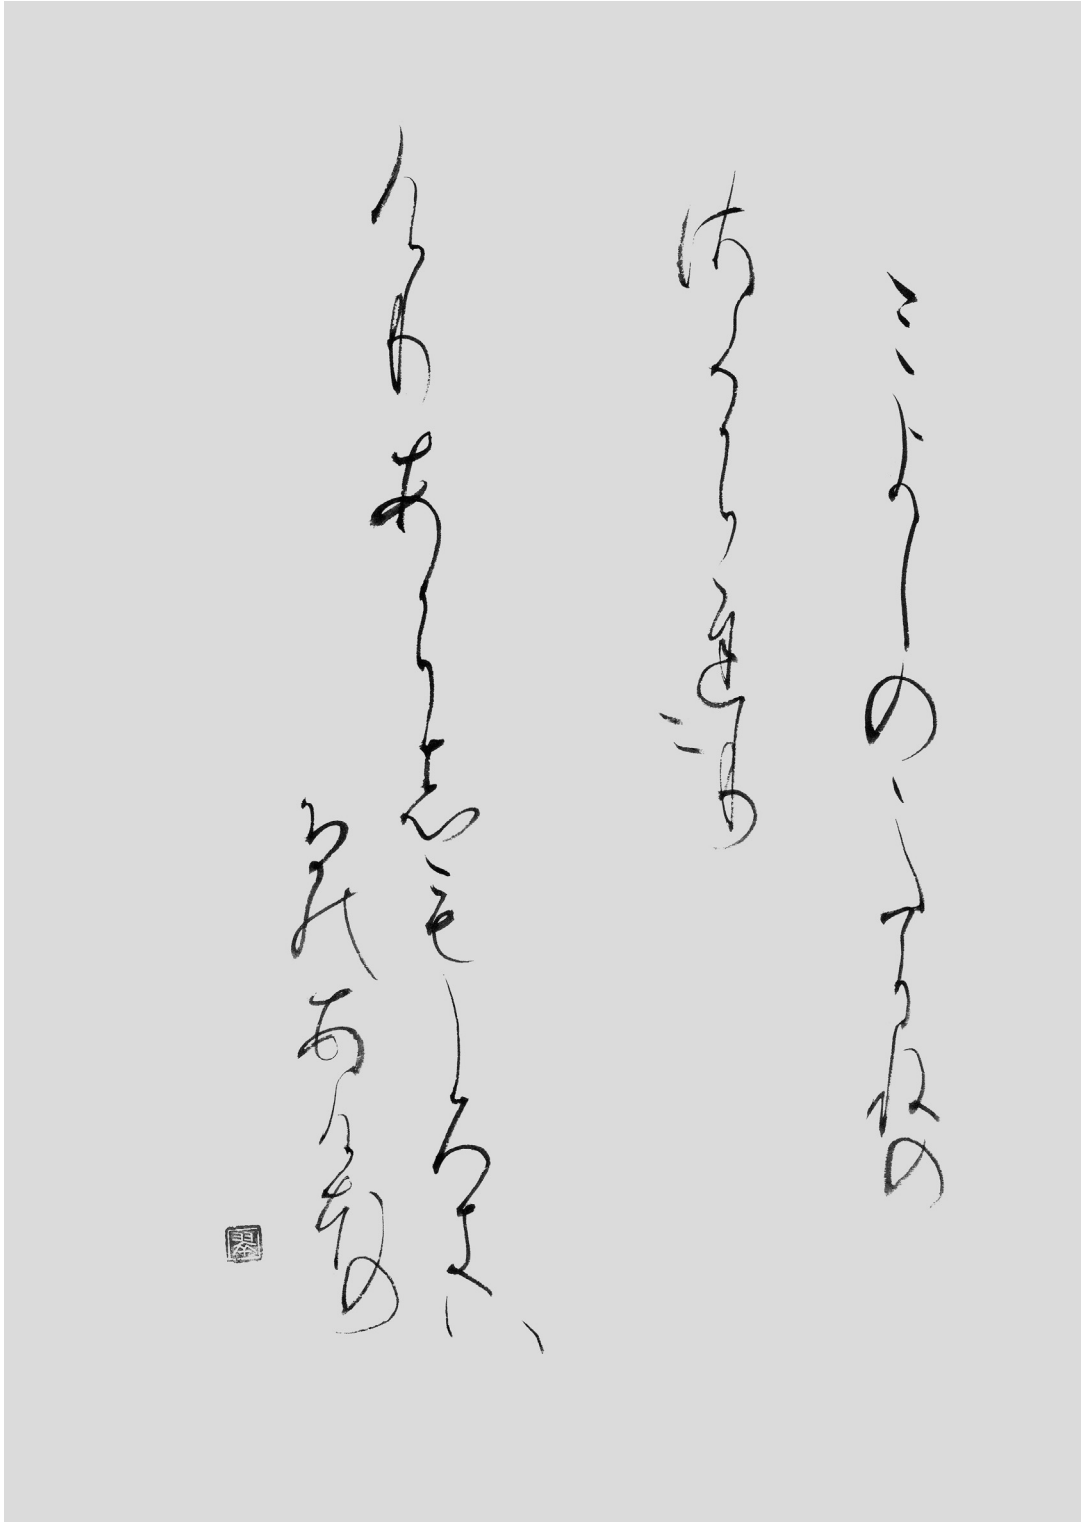 みよしのゝたかねの
さくらちりに
けりあらしもしろきは
るのあけほの